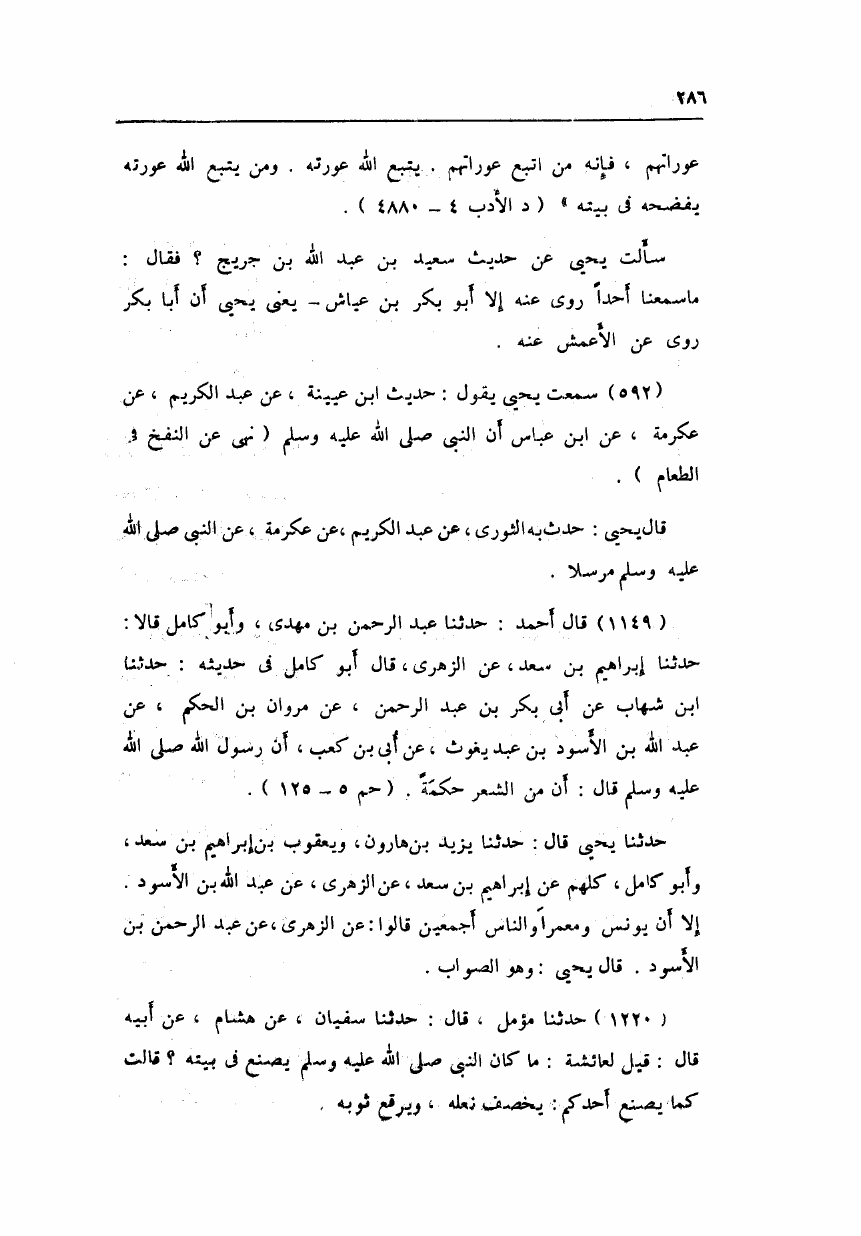 ٢٨٦
عوراتهم ، فإنه من اتبع عوراتهم . يتبع الله عورته . ومن يتبع الله عورته
يفضحه فى بيته » ( د الأدب ٤ – ٤٨٨٠ ) .
سألت يحيى عن حديث سعيد بن عبد الله بن جريج ؟ فقال :
ماسمعنا أحداً روى عنه إلا أبو بكر بن عياش – يعنى يحيى أن أبا بكر
روى عن الأعمش عنه .
(٥٩٢) سمعت يحيى يقول : حديث ابن عيينة ، عن عبد الكريم ، عن
عكرمة ، عن ابن عباس أن النبى صلى الله عليه وسلم ( نهى عن النفخ فى
الطعام ) .
قال يحيى : حدث به الثورى ، عن عبد الكريم ، عن عكرمة ، عن النبى صلى الله
عليه وسلم مرسلا .
( ١١٤٩) قال أحمد : حدثنا عبد الرحمن بن مهدى ، وأبو كامل قالا :
حدثنا إبراهيم بن سعد ، عن الزهرى ، قال أبو كامل فى حديثه : حدثنا
ابن شهاب عن أبى بكر بن عبد الرحمن ، عن مروان بن الحكم ، عن
عبد الله بن الأسود بن عبد يغوث ، عن أبى بن كعب ، أن رسول الله صلى الله
عليه وسلم قال : أن من الشعر حكمةً . ( حم ٥ – ١٢٥ ) .
حدثنا يحيى قال : حدثنا يزيد بن هارون ، ويعقوب بن إبراهيم بن سعد ،
وأبو كامل ، كلهم عن إبراهيم بن سعد ، عن الزهرى ، عن عبد الله بن الأسود .
إلا أن يونس ومعمراً والناس أجمعين قالوا : عن الزهرى ، عن عبد الرحمن بن
الأسود . قال يحيى : وهو الصواب .
( ١٢٢٠ ) حدثنا مؤمل ، قال : حدثنا سفيان ، عن هشام ، عن أبيه
قال : قيل لعائشة : ما كان النبى صلى الله عليه وسلم يصنع فى بيته ؟ قالت
كما يصنع أحدكم : يخصف نعله ، ويرقع ثوبه .